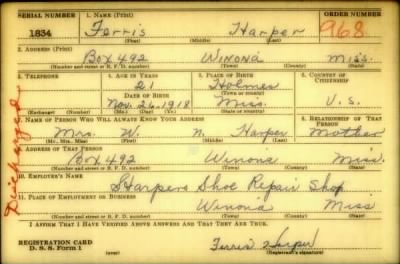 SERIAL NUMBER 1. NAME (Print) ORDER NUMBER
1834 Ferris Harper 968
(First) (Middle) (Last)
2. ADDRESS (Print)
Box 492 Winona Miss.
(Number and street or R. F. D. number) (Town) (County) (State)
3. TELEPHONE 4. AGE IN YEARS 5. PLACE OF BIRTH 6. COUNTRY OF CITIZENSHIP
21 Holmes
DATE OF BIRTH (Town or county)
Nov. 26, 1918 Miss. U.S.
(Exchange) (Number) (Mo.) (Day) (Yr.) (State or country)
7. NAME OF PERSON WHO WILL ALWAYS KNOW YOUR ADDRESS 8. RELATIONSHIP OF THAT PERSON
Mrs. W. N. Harper Mother
(Mr., Mrs., Miss) (First) (Middle) (Last)
9. ADDRESS OF THAT PERSON
Box 492 Winona Miss.
(Number and street or R. F. D. number) (Town) (County) (State)
10. EMPLOYER'S NAME
Harpers Shoe Repair Shop
11. PLACE OF EMPLOYMENT OR BUSINESS
Winona Miss
(Number and street or R. F. D. number) (Town) (County) (State)
I AFFIRM THAT I HAVE VERIFIED ABOVE ANSWERS AND THAT THEY ARE TRUE.
REGISTRATION CARD
D. S. S. Form 1 (over) Ferris Harper
(Registrant's signature)